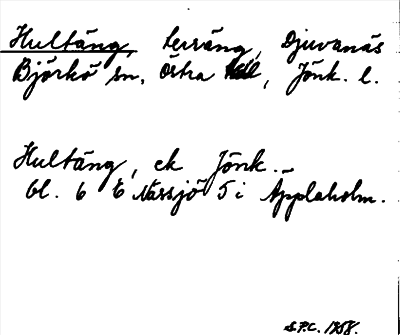 Hultäng, terräng, Djuvanäs
Björkö sn, Östra hd, Jönk. l.
Hultäng, ek Jönk.
bl. 6 E Nässjö 5 i Äpplaholm.
S.P.C. 1958.